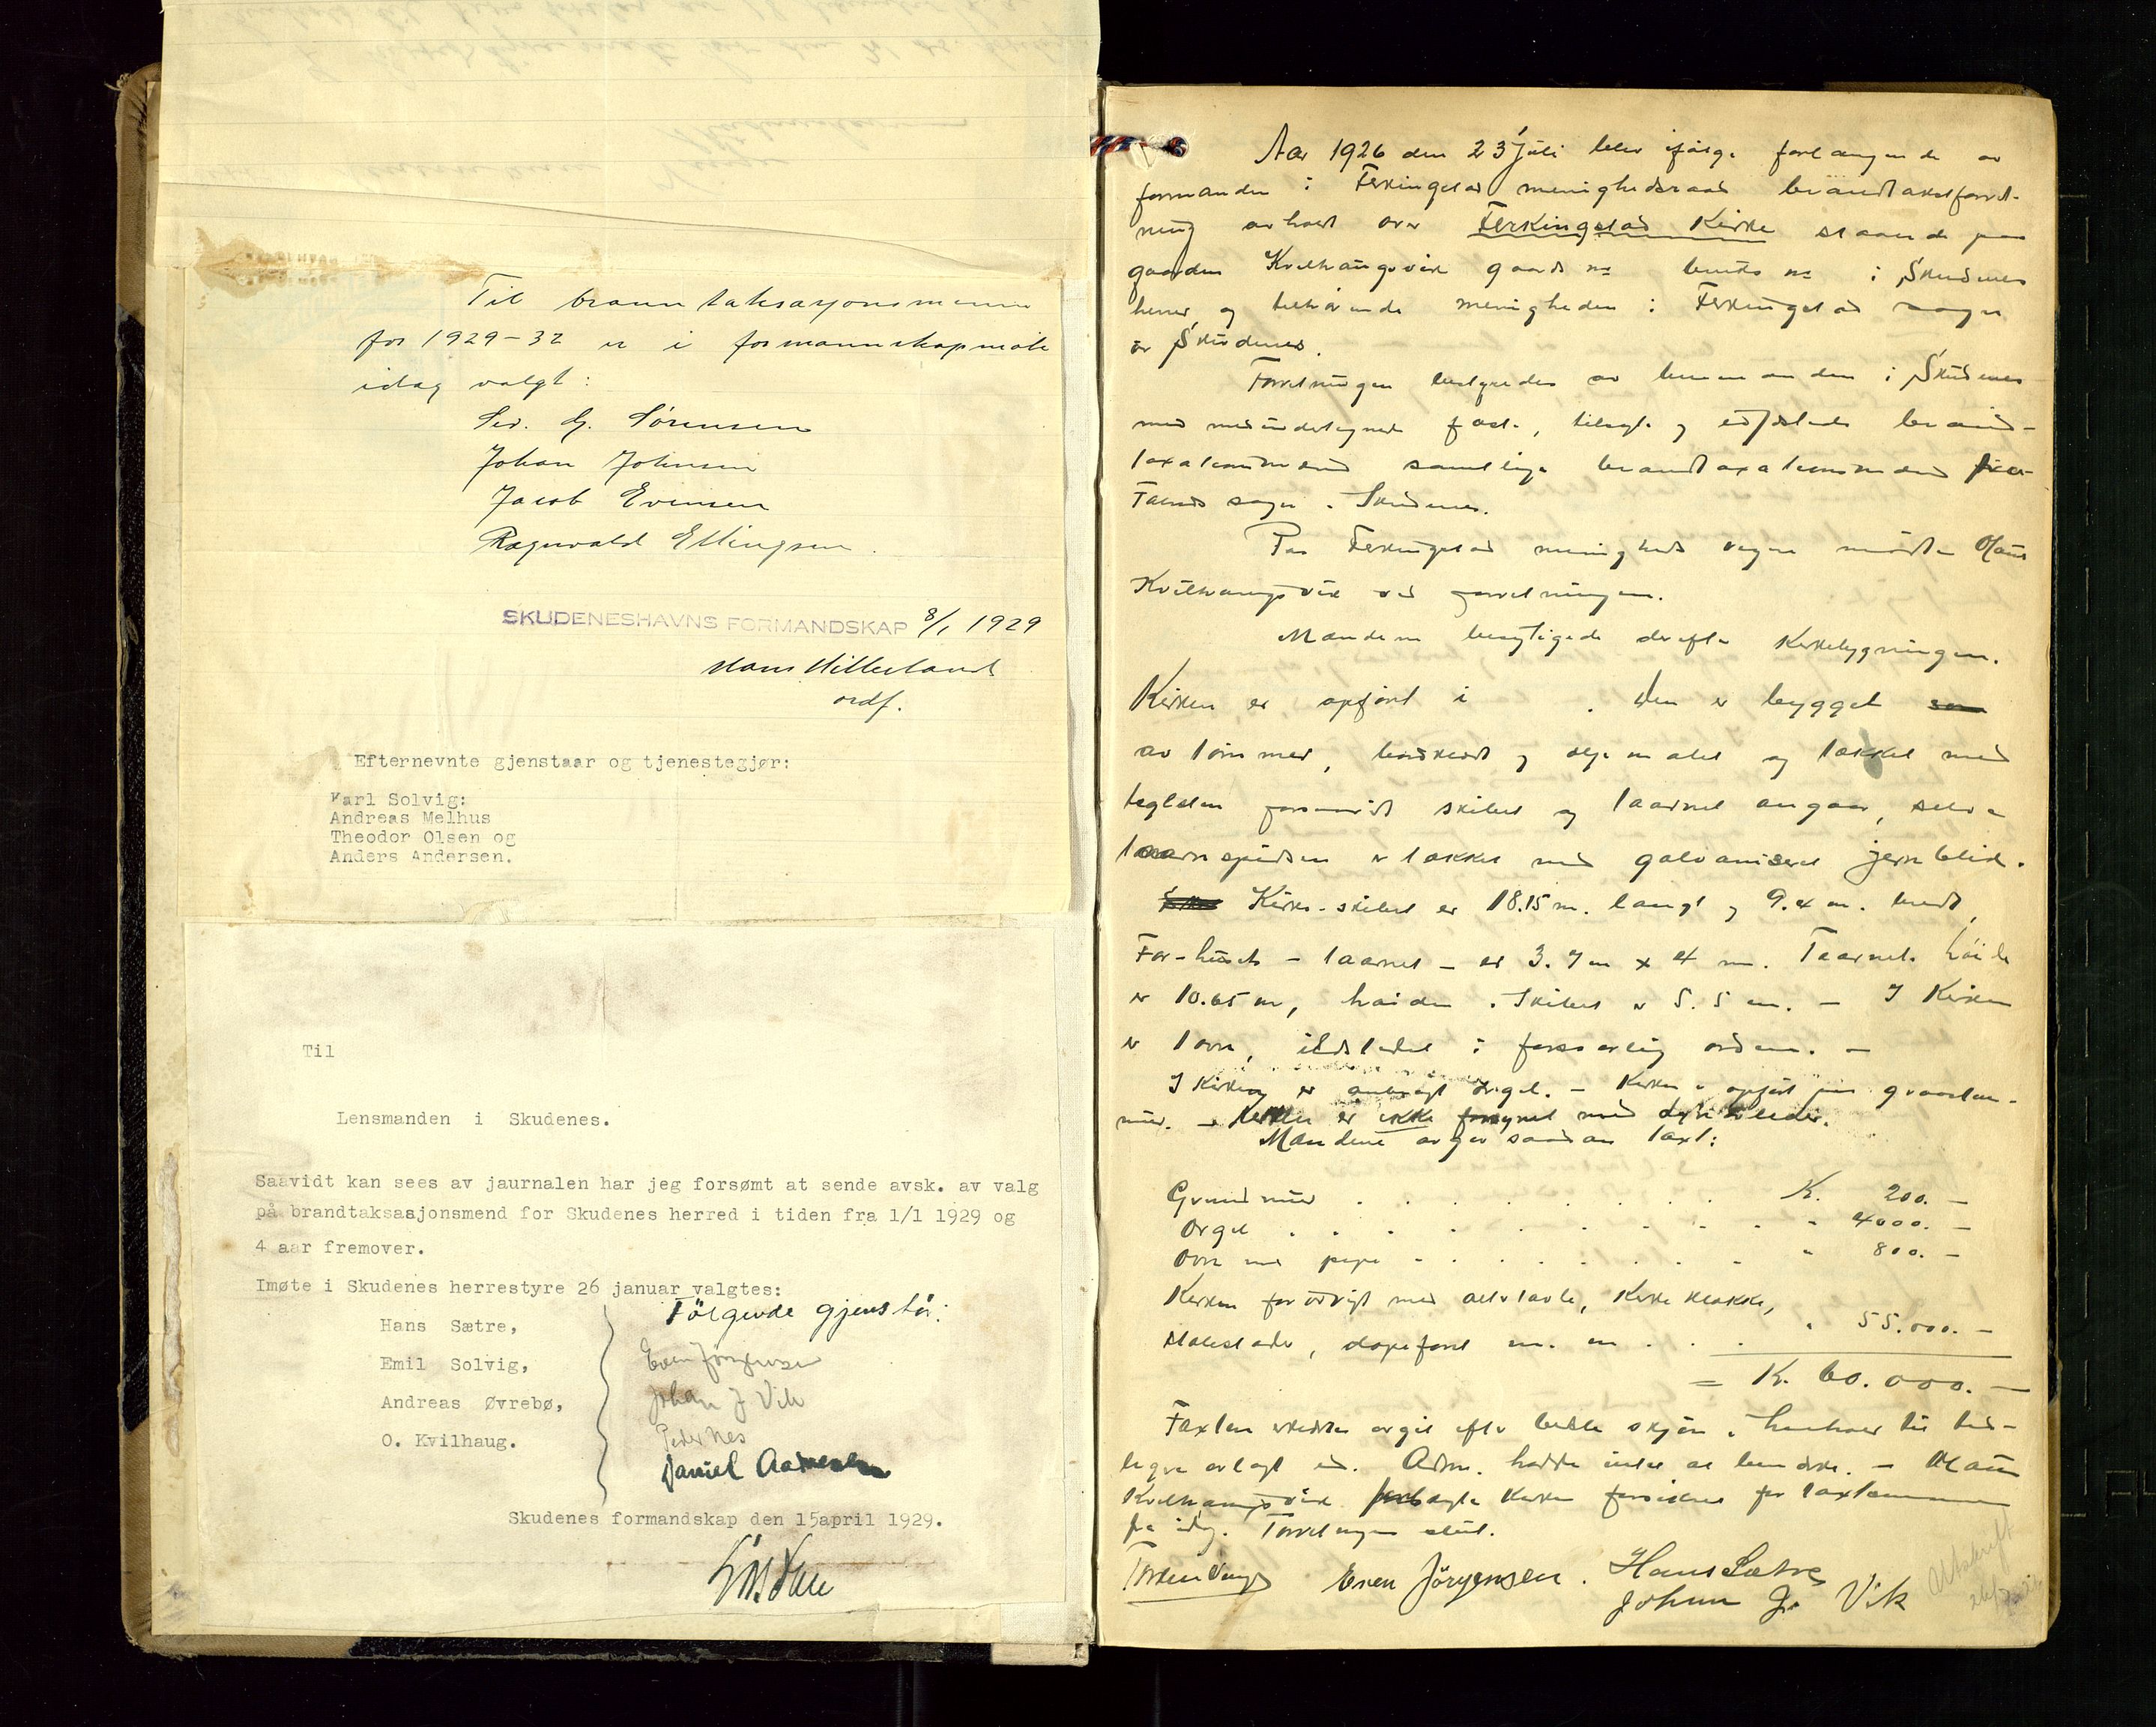 Til branntaksasjonsmenn
for 1929-32 er i formannskapmøte
idag valgt:
Sev. G. Sørensen
Johan Johnsen
Jacob Evensen
Ragnvald Ellingsen.
SKUDENESHAVNS FORMANDSKAP 8/1 1929
Hans Hillesland
ordf.
Efternevnte gjenstaar og tjenestegjør:
Karl Solvig:
Andreas Melhus
Theodor Olsen og
Anders Andersen.
Til
Lensmanden i Skudenes.
Saavidt kan sees av jaurnalen har jeg forsømt at sende avsk. av valg
på brandtaksasjonsmend for Skudenes herred i tiden fra 1/1 1929 og
4 aar fremover.
Imøte i Skudenes herrestyre 26 januar valgtes:
Følgende gjenstår:
Hans Sætre,
Emil Solvig,
Andreas Øvrebø,
O. Kvilhaug.
Even Jørgensen
Johan J Vik
Peder Nes
Daniel Aadnesen
Skudenes formandskap den 15april 1929.
Aar 1926 den 23 Juli blev ifølge forlangende av
formanden i Ferkingstad menighedsraad brandtakstforret-
ning avholdt over Ferkingstad Kirke staaende paa
gaarden Kvilhaugsvik gaards no bruks no i Skudenes
herred og tilhørende menigheden i Ferkingstad sogn
av Skudenes.
Forretningen bestyredes av lensmanden i Skudenes
med medundertegnede faste, tilsagte og edfæstede brand-
taxationsmænd samtlige brandtaxationsmænd fra
Falnes sogn i Skudenes.
Paa Ferkingstad menigheds vegne mødte Hans
Kvilhaugsvik ved forretningen.
Mændene besigtigede derefter Kirkebygningen.
Kirken er opført i . Den er bygget
av tømmer, bordklædt og oljemalet og tækket med
teglsten forsaavidt skibet og taarnet angaar, selve
taarnspidsen er tækket med galvaniseret jernblik.
Kirke-skibet er 18.15 m. langt og 9.4 m. bredt,
For-huset - taarnet - er 3.7 m x 4 m. Taarnets høide
er 10.65 m, høiden i Skibet er 5.5 m. - I Kirken
er 1 ovn, ildstedet i forsvarlig orden. -
I Kirken er anbragt orgel. - Kirken er opført paa graasten-
mur. - Kirken er ikke forsynet med lynavleder.
Mændene avgav saadan taxt:
Grundmur . . . . . . . . K. 200. -
Orgel . . . . . . . . " 4000. -
Ovn med pipe . . . . . . . " 800. -
Kirken forøvrigt med altertavle, Kirkeklokke,
stolestader, døpefont m. m . . . " 55.000. -
= K. 60.000. -
Taxten erklæres avgit efter bedste skjøn i henhold til tid-
ligere avlagt ed. Adm. hadde intet at bemerke. - Hans
Kvilhaugsvik forlangte Kirken forsikret for taxtsummen
fra idag. Forretningen slut.
Even Jörgensen. Hans Sætre
Johan J. Vik
Utskrift